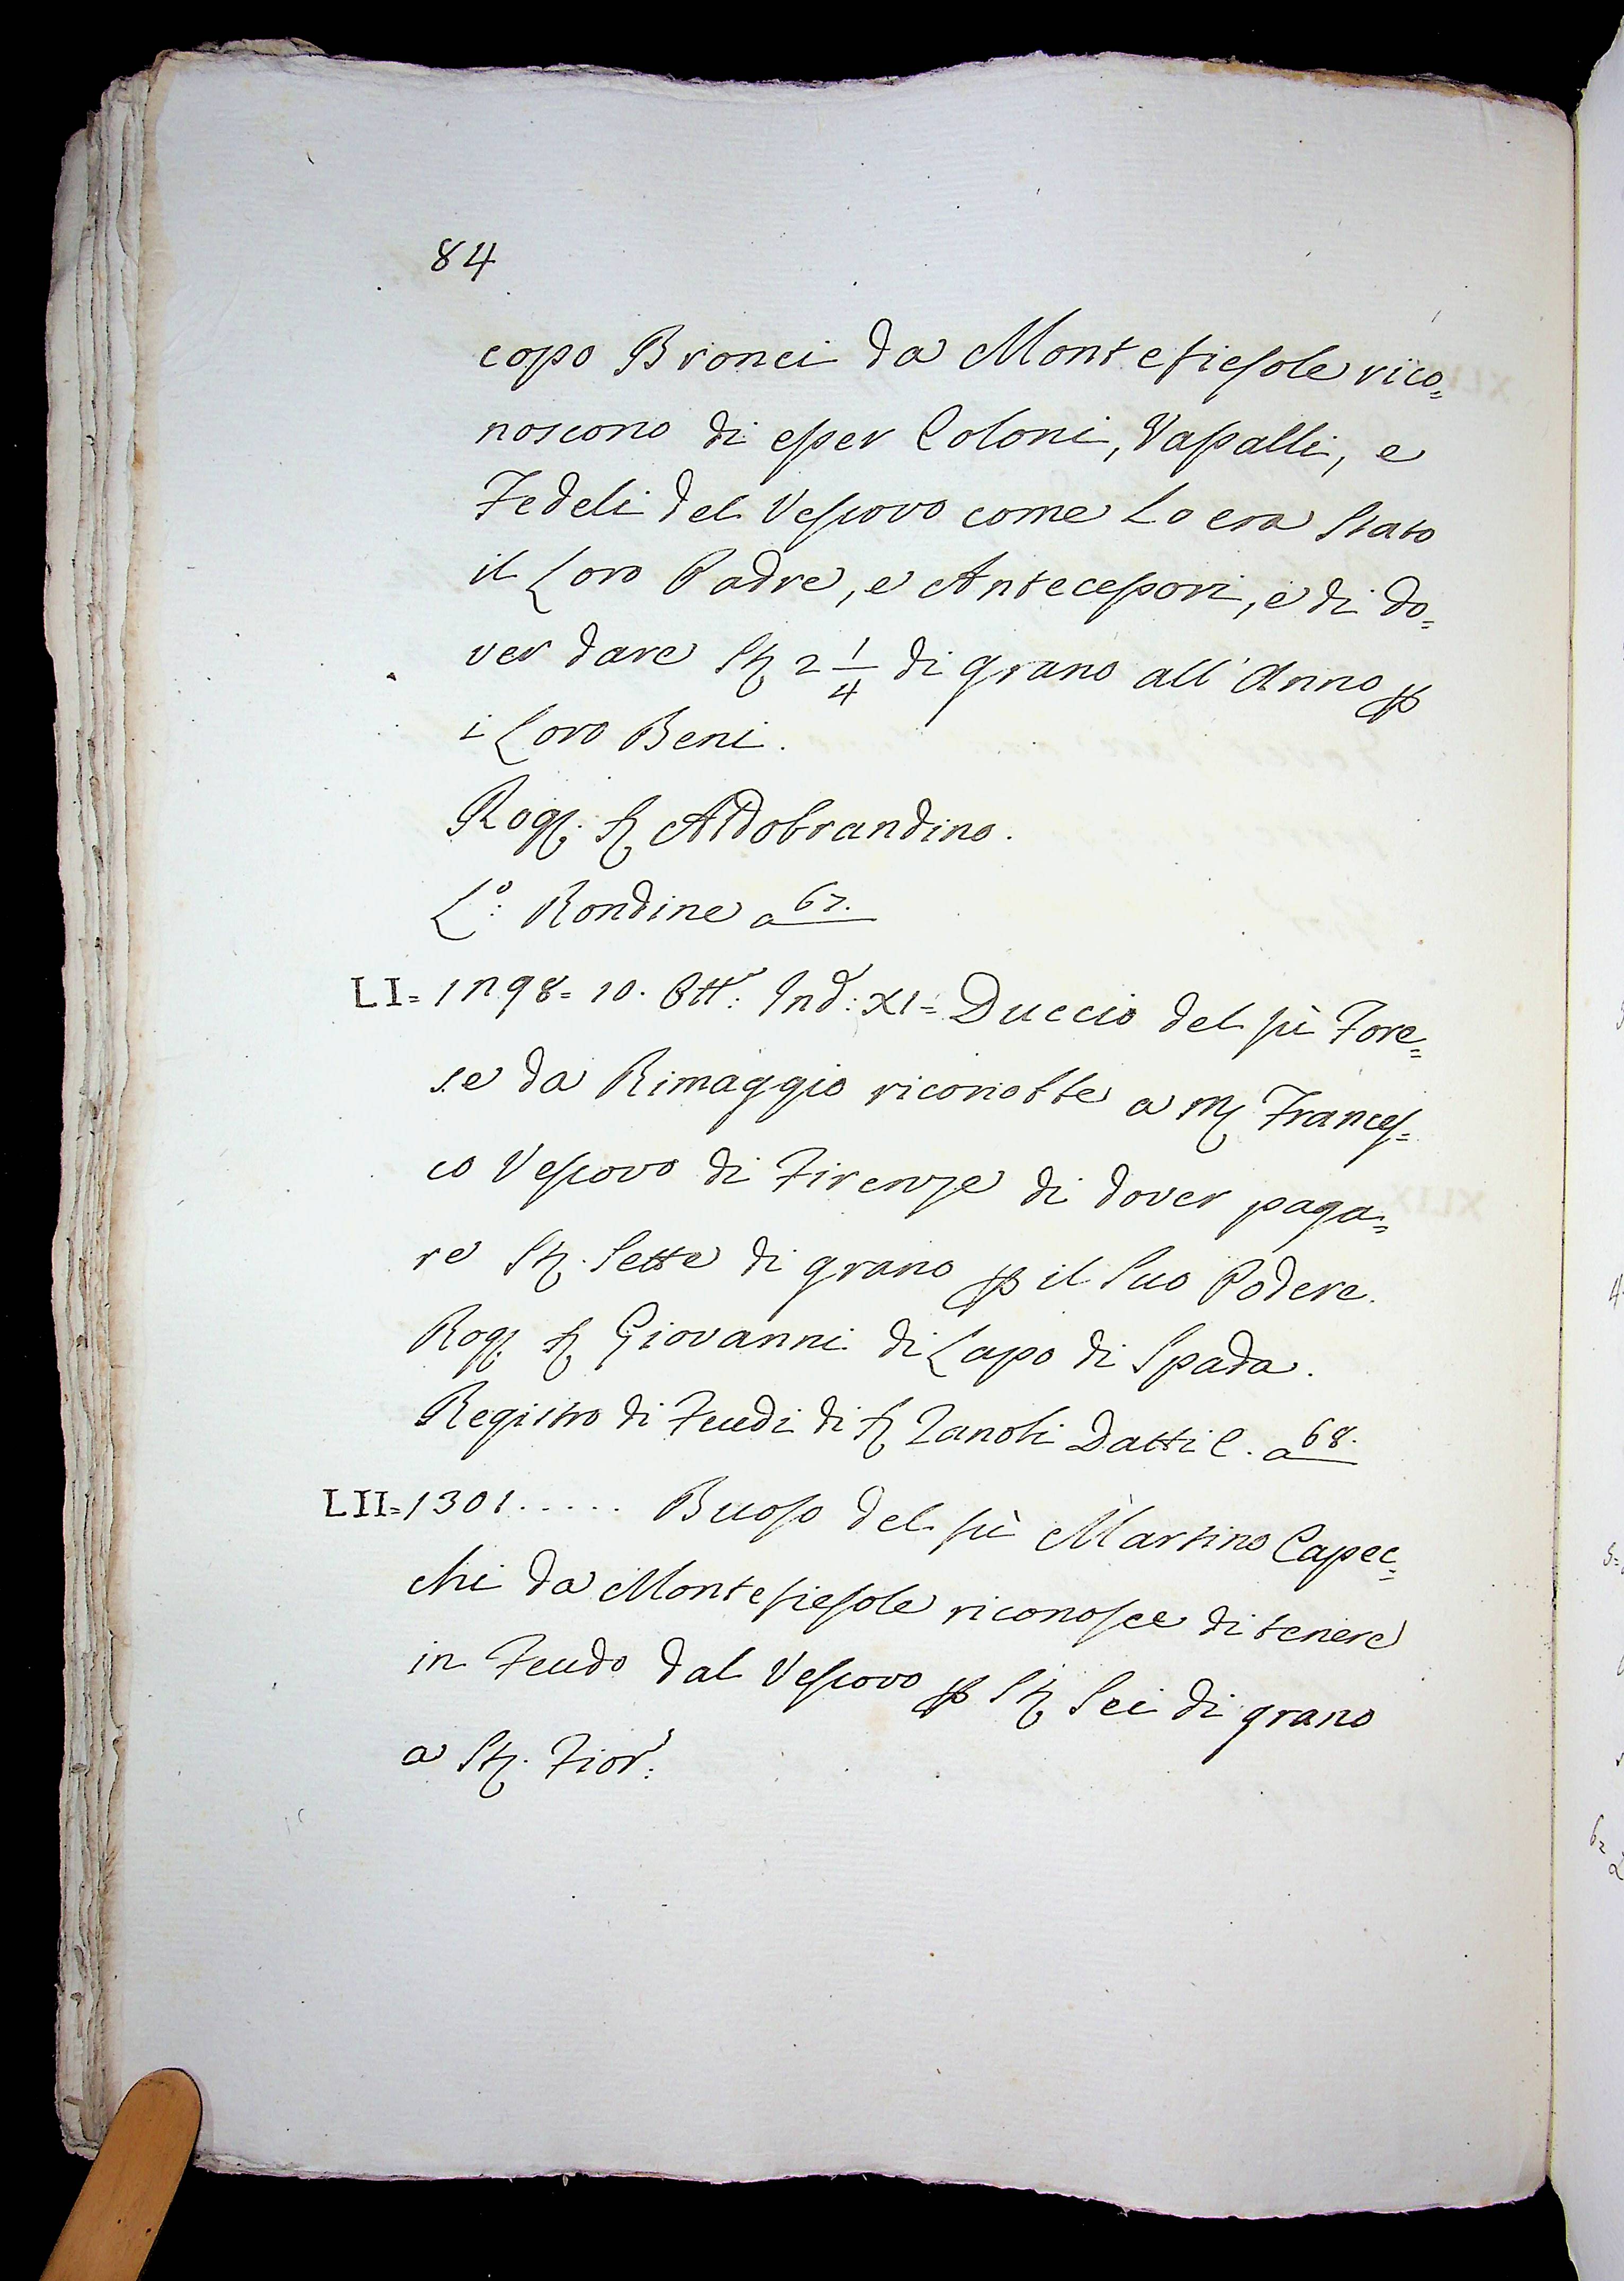 84
copo Bronci da Montefiesole rico=
noscono di esser Coloni, Vassalli, e
Fedeli del Vescovo come Lo era Stato
il Loro Padre, e Antecessori, e di do=
ver dare St 2 1/4 di grano all'Anno p
i Loro Beni.
Rog. S Aldobrandino.
Lo: Rondine a 67.
LI= 1298= 10. Ott: Ind: XI= Duccio del fù Fore=
se da Rimaggio riconobbe a M Frances=
co Vescovo di Firenze di dover paga=
re St. Sette di grano p il Suo Podere.
Rog. S Giovanni di Lapo di Spada.
Registro di Feudi di S Zanobi Datti C. a 68.
LII= 1301..... Buoso del fù Martino Capec=
chi da Montefiesole riconosce di tenere
in Feudo dal Vescovo p St Sei di grano
a St. Fior: